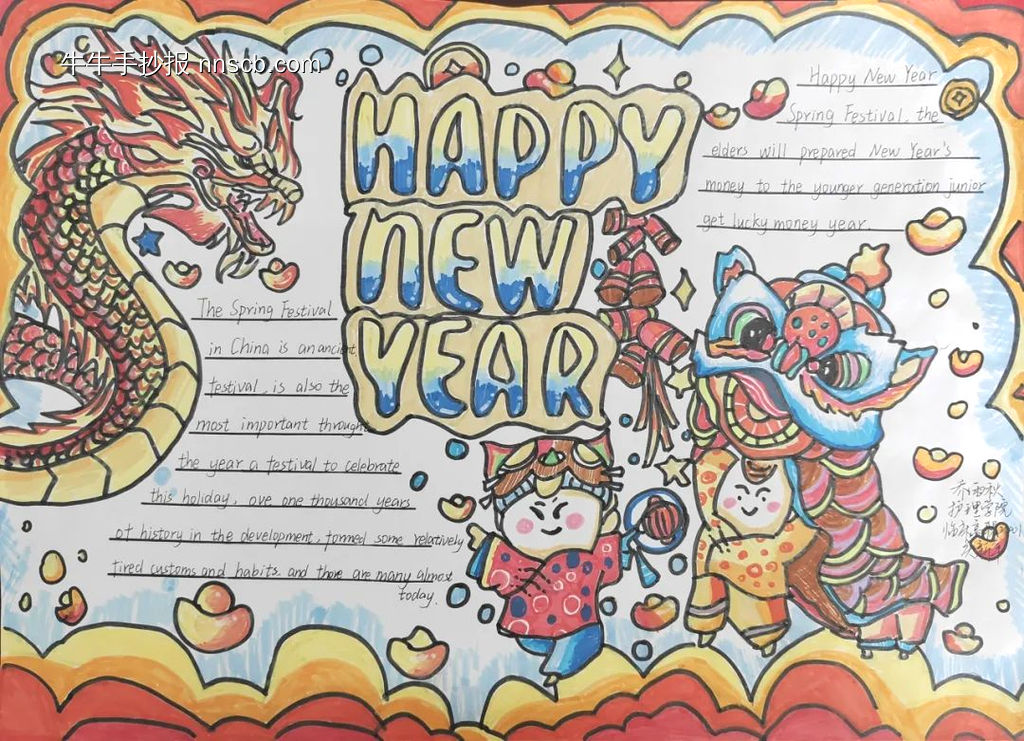 牛牛手抄报 nnscb.com
HAPPY
NEW
YEAR
Happy New Year
Spring Festival. the
elders will prepared New Year's
money to the younger generation junior
get lucky money year.
The Spring Festival
in China is an ancient
festival, is also the
most important through
the year a festival to celebrate
this holiday, ove one thousand years
of history in the development, formed some relatively
fired customs and habits. and there are many almost
today.
乔雨秋
护理学院